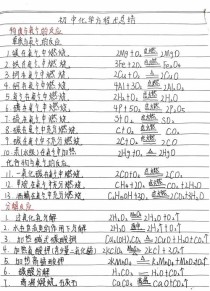 初中化学方程式总结
物质与氧气的反应
单质与氧气的反应
1. 镁在氧气中燃烧 2Mg+O₂ 点燃 2MgO
2. 铁在氧气中燃烧 3Fe+2O₂ 点燃 Fe₃O₄
3. 铜在氧气中 2Cu+O₂ 2CuO
4. 铝在氧气中燃烧 4Al+3O₂ 点燃 2Al₂O₃
5. 氢气 燃烧 2H₂+O₂ 点燃 2H₂O
6. 在氧气中燃烧 4P+5O₂ 点燃 2P₂O₅
7. 在氧气中燃烧 S+O₂ 点燃 SO₂
8. 碳在氧气中 燃烧 C+O₂ 点燃 CO₂
9. 碳在氧气中不 燃烧 2C+O₂ 点燃 2CO
10. 汞 在氧气中 2Hg+O₂ 2HgO
化合物与氧气的反应
11. 一氧化碳在氧气中燃烧 2CO+O₂ 点燃 2CO₂
12. 甲烷在氧气中燃烧 CH₄+2O₂ 点燃 CO₂+2H₂O
13. 酒精在氧气中燃烧 C₂H₅OH+3O₂ 点燃 2CO₂+3H₂O
分解反应
1. 过氧化氢分解 2H₂O₂ 2H₂O+O₂↑
2. 水在直流电的作用下分解 2H₂O 通电 2H₂↑+O₂↑
3. 加热碱式碳酸铜 Cu₂(OH)₂CO₃ 2CuO+H₂O+CO₂↑
4. 加热氯酸钾 2KClO₃ 2KCl+3O₂↑
5. 加热高锰酸钾 2KMnO₄ K₂MnO₄+MnO₂+O₂↑
6. 碳酸分解 H₂CO₃ H₂O+CO₂↑
7. 高温煅烧石灰石 CaCO₃ 高温 CaO+CO₂↑